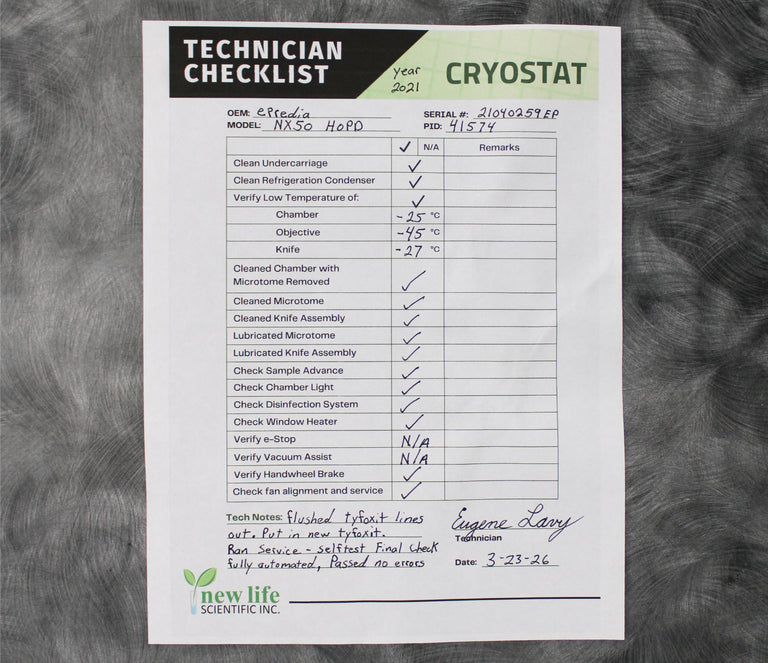 TECHNICIAN CHECKLIST
Year 2021
CRYOSTAT
OEM: ePredia SERIAL #: 21040259EP
MODEL: NX50 HOPD PID: 41574
✓ N/A Remarks
Clean Undercarriage ✓
Clean Refrigeration Condenser ✓
Verify Low Temperature of: ✓
Chamber -25 °C
Objective -45 °C
Knife -27 °C
Cleaned Chamber with
Microtome Removed ✓
Cleaned Microtome ✓
Cleaned Knife Assembly ✓
Lubricated Microtome ✓
Lubricated Knife Assembly ✓
Check Sample Advance ✓
Check Chamber Light ✓
Check Disinfection System ✓
Check Window Heater ✓
Verify e-Stop N/A
Verify Vacuum Assist N/A
Verify Handwheel Brake ✓
Check fan alignment and service ✓
Tech Notes: flushed tyfoxit lines
out. Put in new tyfoxit.
Ran Service - selftest Final Check
fully automated, Passed no errors
Eugene Lavy
Technician
Date: 3-23-26
new life
SCIENTIFIC INC.